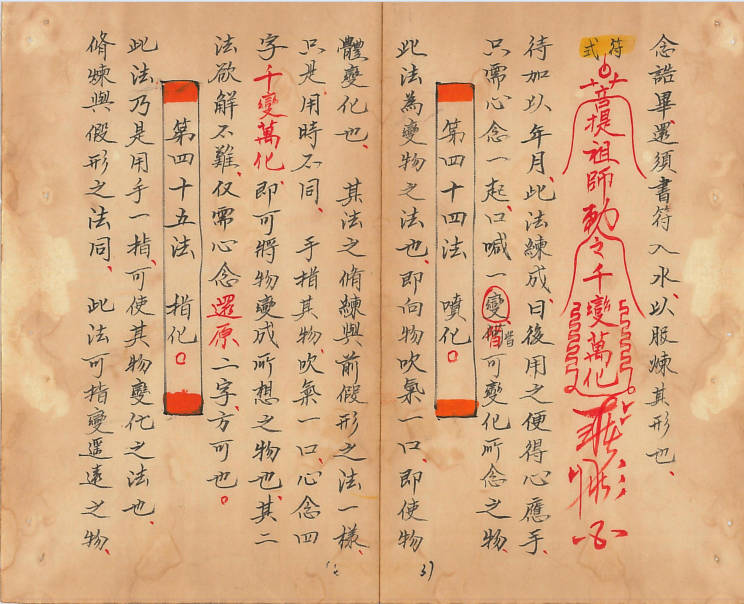 念誥畢還須書符入水、以服煉其形也、
符式
菩提祖師勅令千變萬化
待加以年月、此法練成、日後用之便得心應手、
只需心念一起、口喊一變皆可變化所念之物、
第四十四法 噴化。
此法為變物之法也、即向物吹氣一口、即使物
31
體變化也、其法之脩練與前假形之法一樣、
只是用時不同、手指其物、吹氣一口、心念四
字千變萬化、即可將物變成所想之物也、其二
法欲解不難、仅需心念還原二字、方可也。
第四十五法 指化。
此法乃是用手一指、可使其物變化之法也、
脩煉與假形之法同、此法可指變遥遠之物、